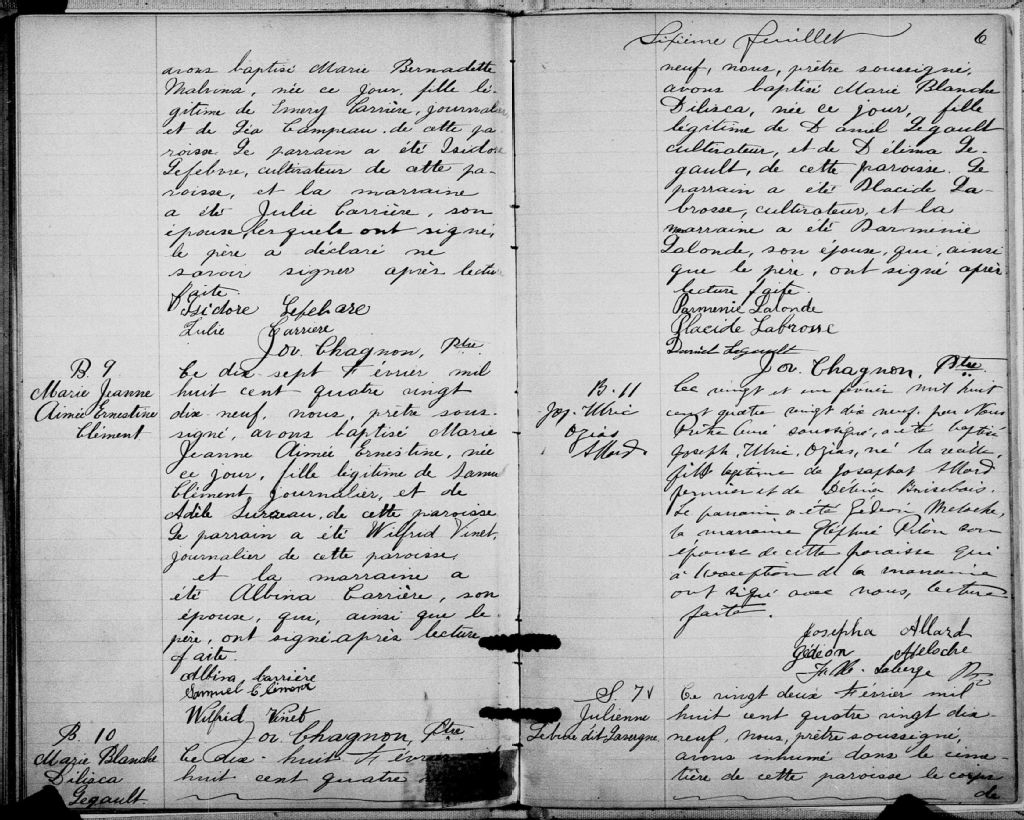 avons baptisé Marie Bernadette
Malvina, née ce jour, fille lé-
gitime de Emery Carrière, journalier
et de Léa Campeau de cette pa
roisse Le parrain a été Isidore
Lefebvre, cultivateur de cette pa-
roisse, et la marraine
a été Julie Carrière, son
épouse, lesquels ont signé,
le père a déclaré ne
savoir signer après lecture
faite.
Isidore Lefebvre
Julie Carriere
Jos. Chagnon, Ptre
B. 9
Marie Jeanne
Aimée Ernestine
Clément
Ce dix-sept Février mil
huit cent quatre vingt
dix-neuf, nous, prêtre sous-
signé, avons baptisé Marie
Jeanne Aimée Ernestine, née
ce jour, fille légitime de Samuel
Clément journalier, et de
Adèle de cette paroisse
Le parrain a été Wilfrid Vinet,
journalier de cette paroisse
et la marraine a
été Albina Carrière, son
épouse, qui, ainsi que le
père, ont signé après lecture
faite.
Albina Carrière
Samuel Clément
Wilfrid Vinet
Jos. Chagnon, Ptre
B. 10
Marie Blanche
Dilisca
Legault
Ce dix-huit Février
huit cent quatre
Sixième feuillet 6
neuf, nous, prêtre soussigné,
avons baptisé Marie Blanche
Dilisca, née ce jour, fille
légitime de Daniel Legault
cultivateur, et de Délima Le-
gault, de cette paroisse. Le
parrain a été Placide La-
brosse, cultivateur, et la
marraine a été Parmenie
Lalonde, son épouse, qui, ainsi
que le père, ont signé après
lecture faite.
Parmenie Lalonde
Placide Labrosse
Daniel Legault
Jos. Chagnon, Ptre
B. 11
Jos. Ulric
Ozias
Allard
Ce vingt et un février mil huit
cent quatre vingt dix neuf, par Nous
Prêtre Curé soussigné, a été baptisé
Joseph, Ulric, Ozias, né la veille,
fils légitime de Josaphat Allard
fermier et de Délina Brisebois.
Le parrain a été Gédeon Meloche,
la marraine Pilon son
épouse de cette paroisse qui
à l'exception de la marraine
ont signé avec nous, lecture
faite.
Josepha Allard
Gédéon Meloche
Laberge Ptre
S. 7
Julienne
Lebeau dit Lavergne
Ce vingt deux Février mil
huit cent quatre vingt dix
neuf, nous, prêtre soussigné,
avons inhumé dans le cime-
tière de cette paroisse le corps
de